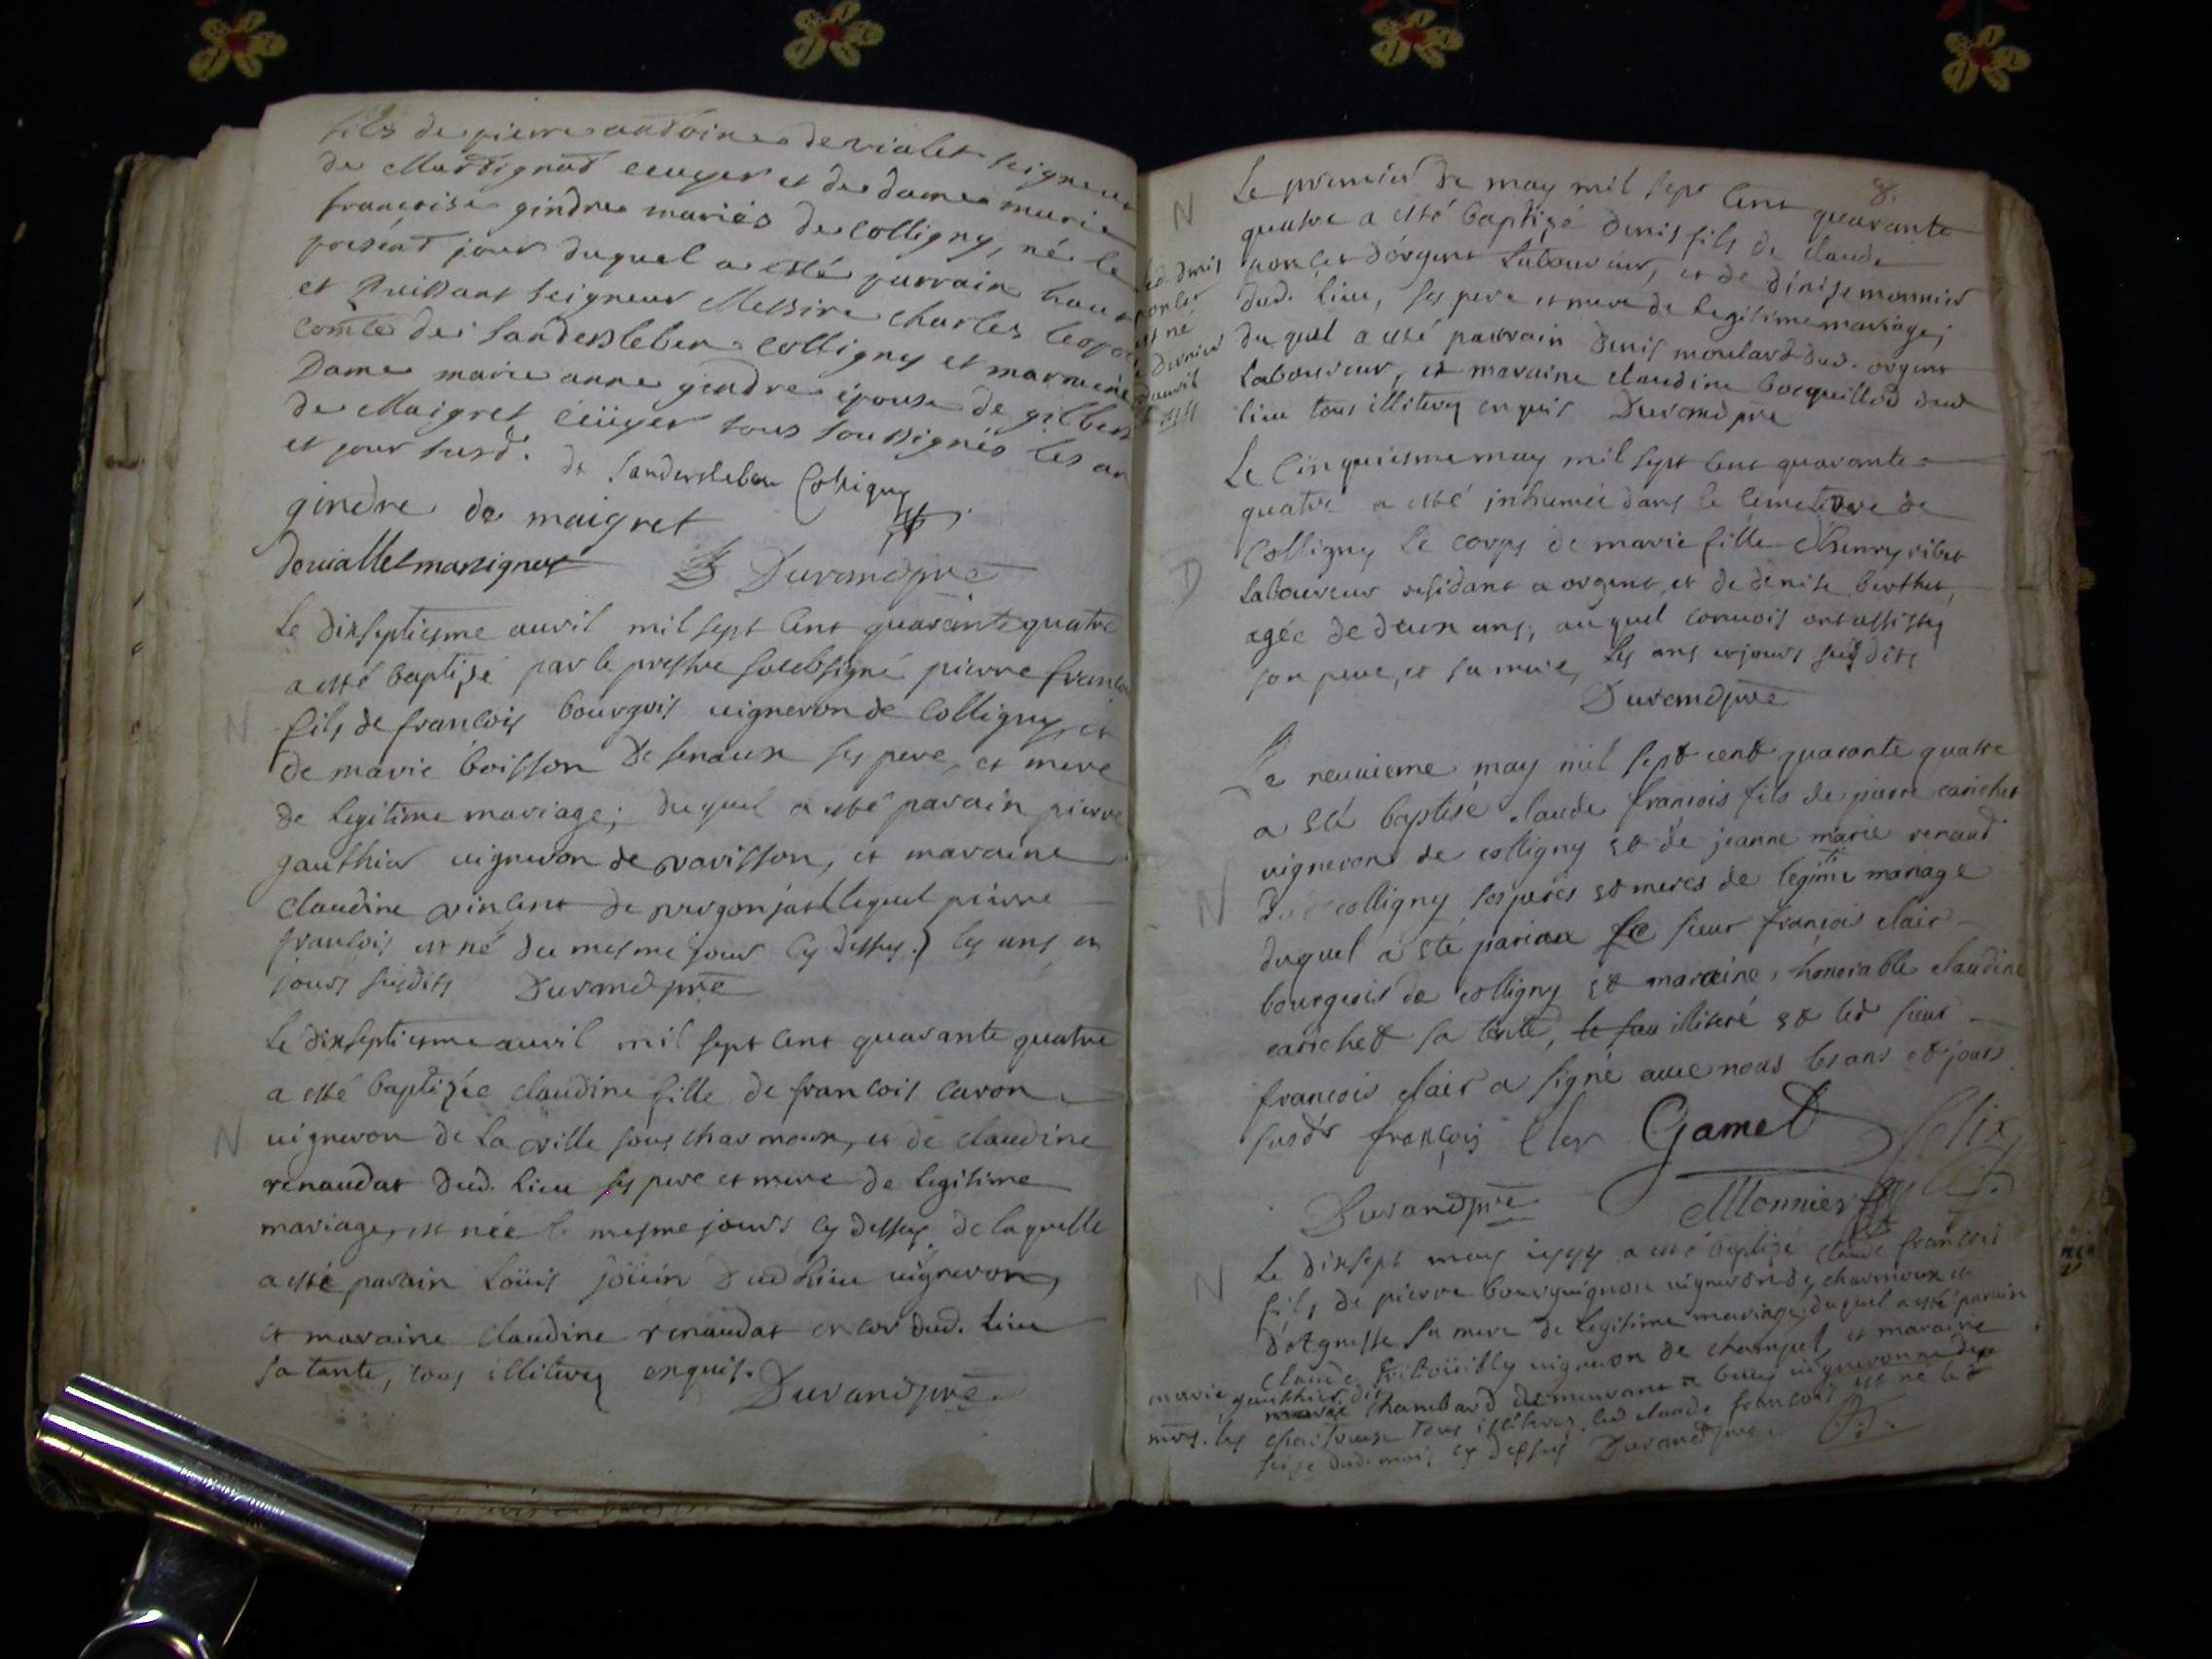 fils de pierre antoine de vialet seigneur
de Martignat ecuyer et de dame marie
francoise gindre mariés de Colligny, né le
présent jour duquel a esté parrain haut
et Puissant seigneur Messire Charles leopo
comte de Sandersleben Colligny et
Dame marie anne gindre épouse de gilbert
de Maigret ecüyer tous soussignés les an
et jour susd. de Sandersleben Colligny
gindre de maigret
deviallet martignat Durand pre
Le dixseptiesme auril mil sept cent quarante quatre
a esté baptisé par le prestre soubsigné pierre francois
fils de francois bourgois uigneron de Colligny, et
N
de marie boisson de senaux ses pere, et mere
de legitime mariage; duquel a esté parain pierre
gauthier uigneron de vavisson, et maraine
claudine vincent de lequel pierre
francois est né du mesme jour cy dessus.) les ans et
jours susdits Durand pre
Le dixseptiesme auril mil sept cent quarante quatre
a esté baptizée claudine fille de francois caron
N
uigneron de la ville sous charmoux, et de claudine
renaudat dud. lieu ses pere et mere de legitime
mariage, est née le mesme jours cy dessus, de laquelle
a esté parain Loüis joüin dud lieu uigneron,
et maraine claudine renaudat encor dud. lieu
sa tante, tous illiterez enquis. Durand pre.
8.
Le premier de may mil sept cent quarante
N
quatre a esté baptizé denis fils de claude
poncet d'orgent Laboureur, et de denise monnier
dud. lieu, ses pere et mere de legitime mariage;
duquel a esté parrain denis moulard dud. orgent
Laboureur, et maraine claudine bocquillod dud
lieu tous illiterez enquis Durand pre
led. denis
poncet
est né
le dernier
d'auril
1744
Le Cinquiesme may mil sept cent quarante
quatre a esté inhumée dans le cemetiere de
Colligny Le corps de marie fille d'henry vibert
D
Laboureur residant a orgent, et de denise berthet,
agée de deux ans, auquel conuois ont assistez
son pere, et sa mere, les ans et jours susdits
Durand pre
Le neuuieme may mil sept cent quarante quatre
a eté baptisé claude françois fils de pierre carichet
vigneron de colligny et de jeanne marie renaud
N
de colligny ses peres et meres de legitime mariage
duquel a eté parian le sieur françois clair
bourgeois de colligny et maraine, honorable claudine
carichet sa tante, illiteré et led sieur
francois clair a signé auec nous les ans et jours
susdts françois Cler Gamet felix
Durand pre Monnier
Le dixsept may 1744 a esté baptizé claude francois
N
fils de pierre bourguignon uigneron de charmoux et
d'Agnesse sa mere de legitime mariage, duquel a esté parain
claude uigneron de champel, et maraine
marie gauthier dit
chambard demeurant a uigneronne des
mrs. les chartreux tous illiterez. led claude francois est né led
seize dud. mois cy dessus Durand pre.